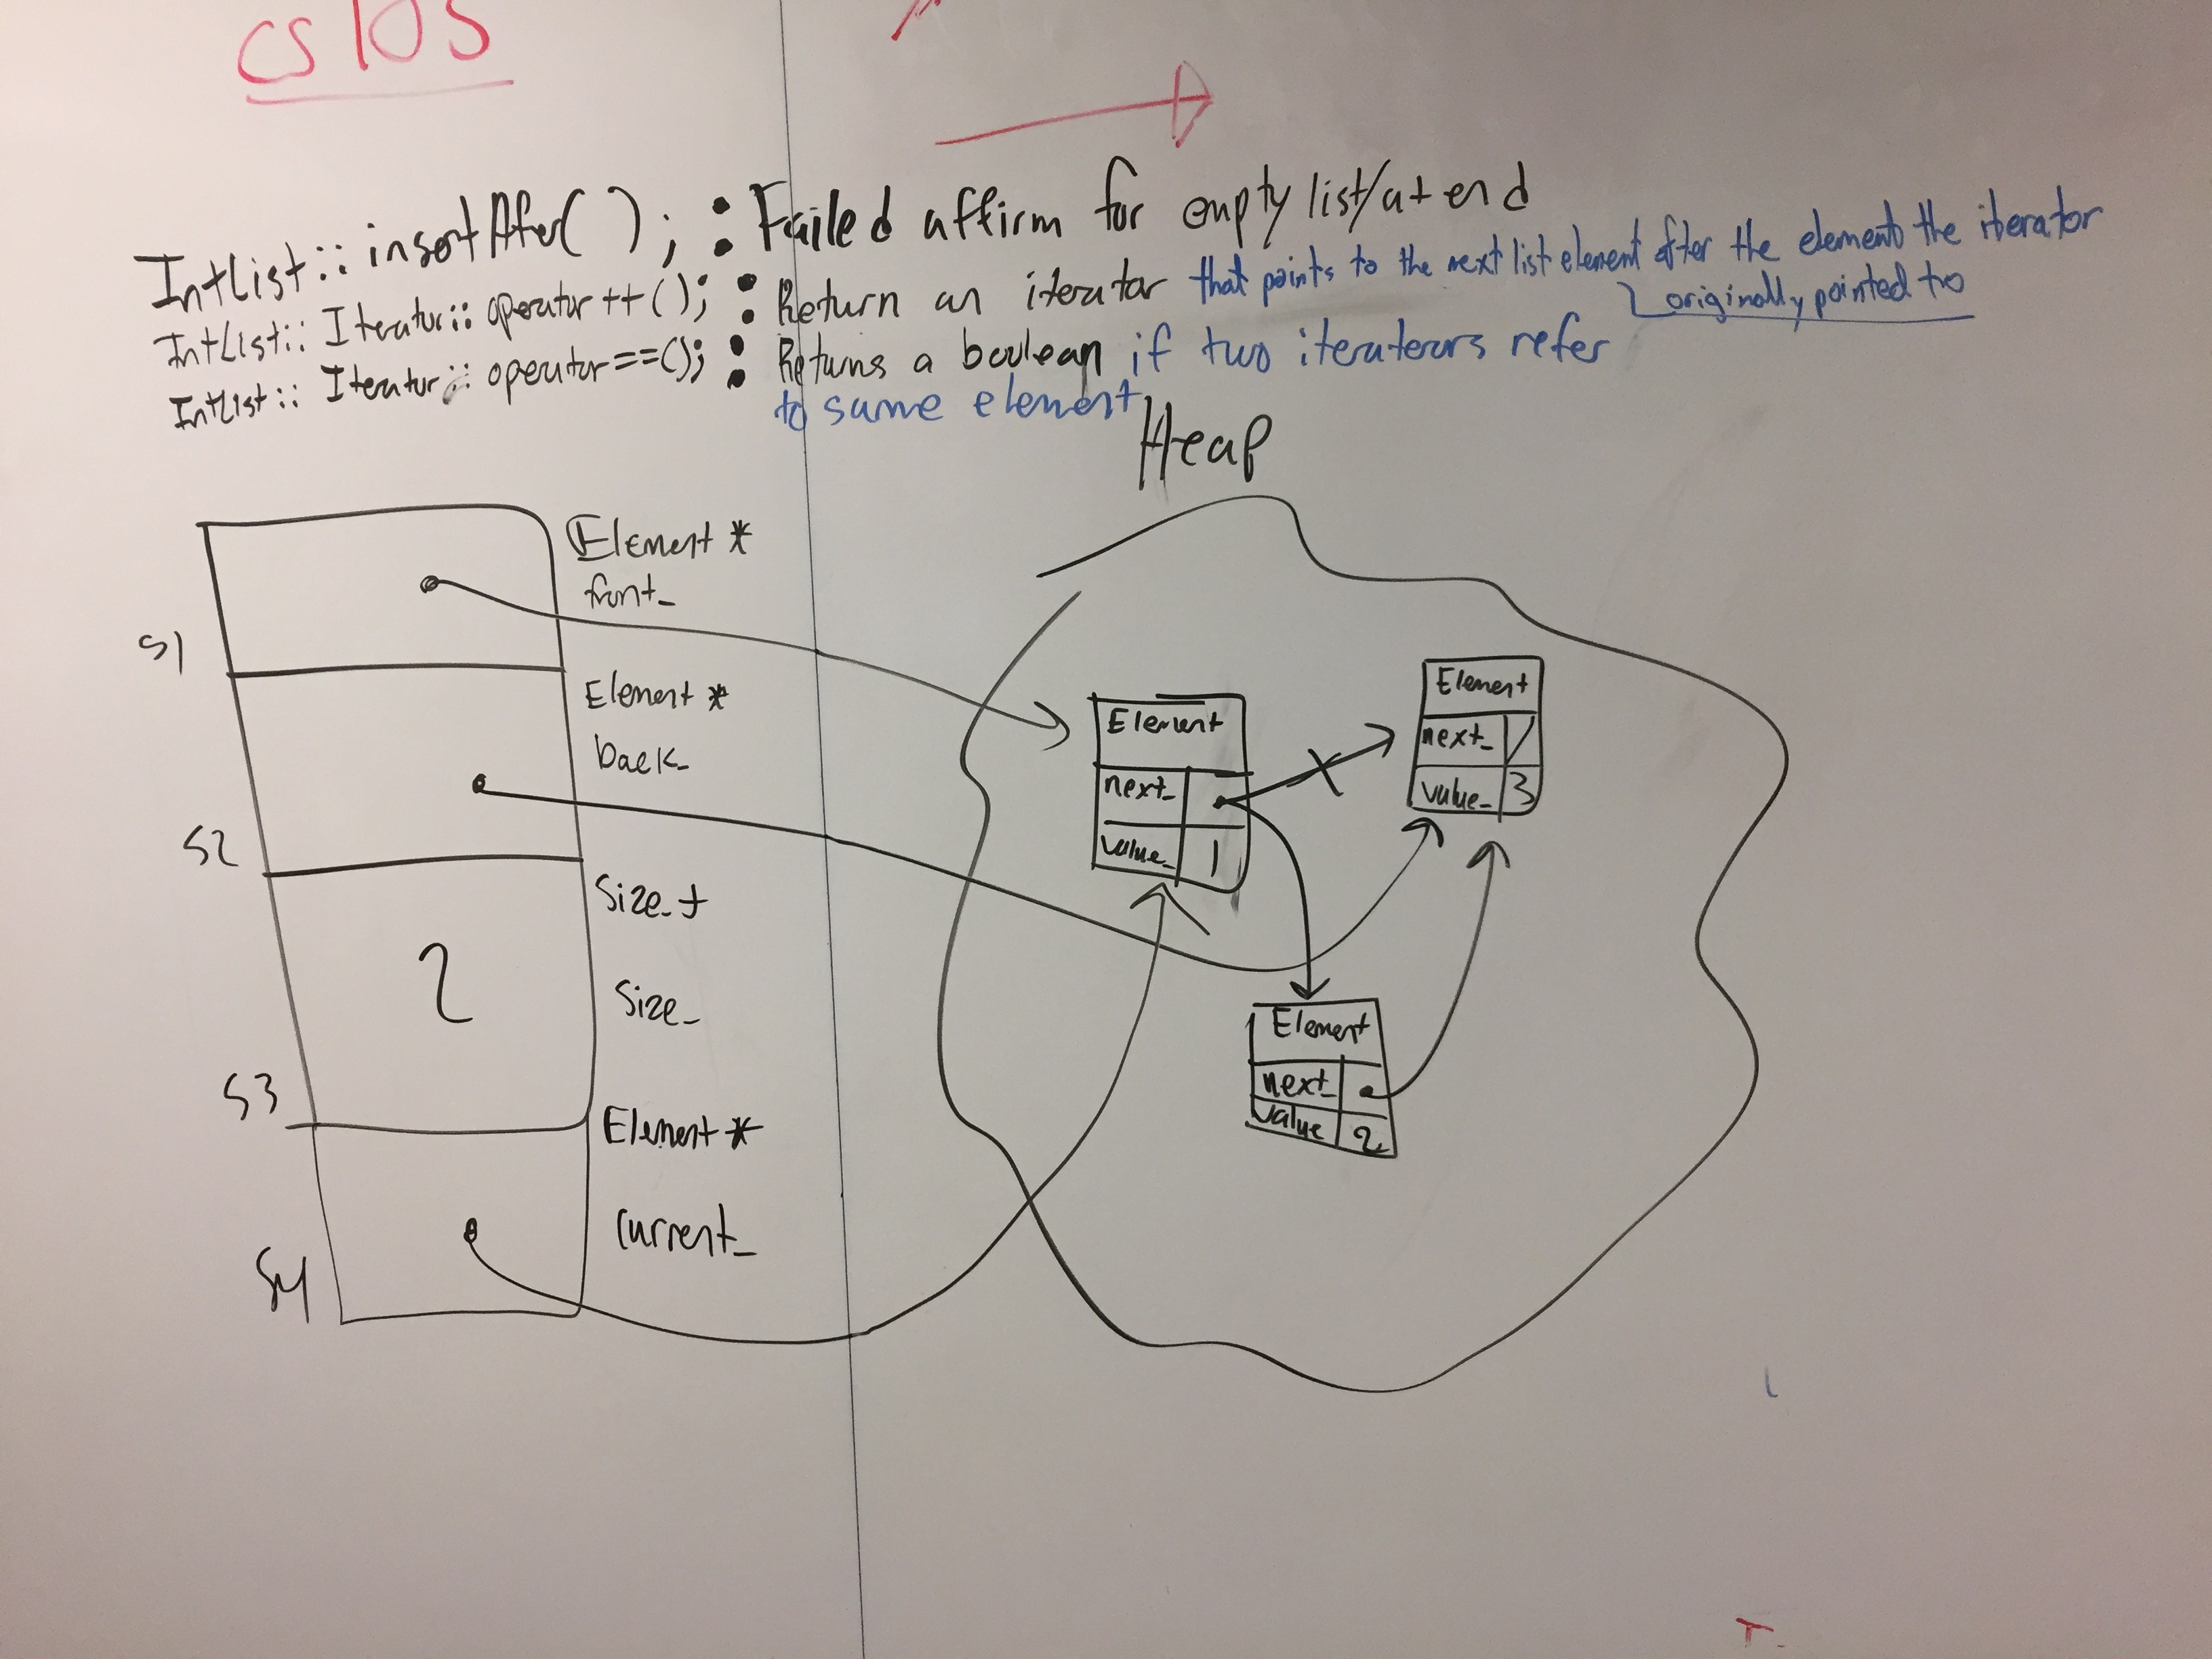 CS 105
IntList::insertAfer( ); : Failed affirm for empty list/at end
IntList:: Iterator:: operator ++(); : Return an iterator that points to the next list element after the element the iterator
originally pointed to
IntList:: Iterator:: operator==(); : Returns a boolean if two iterateors refer
to same element
Heap
Element *
front_
S1
Element *
back_
S2
Size_t
2
Size_
S3
Element *
Current_
S4
Element
next_
value_ 1
Element
next_
value_ 3
Element
next_
value 2